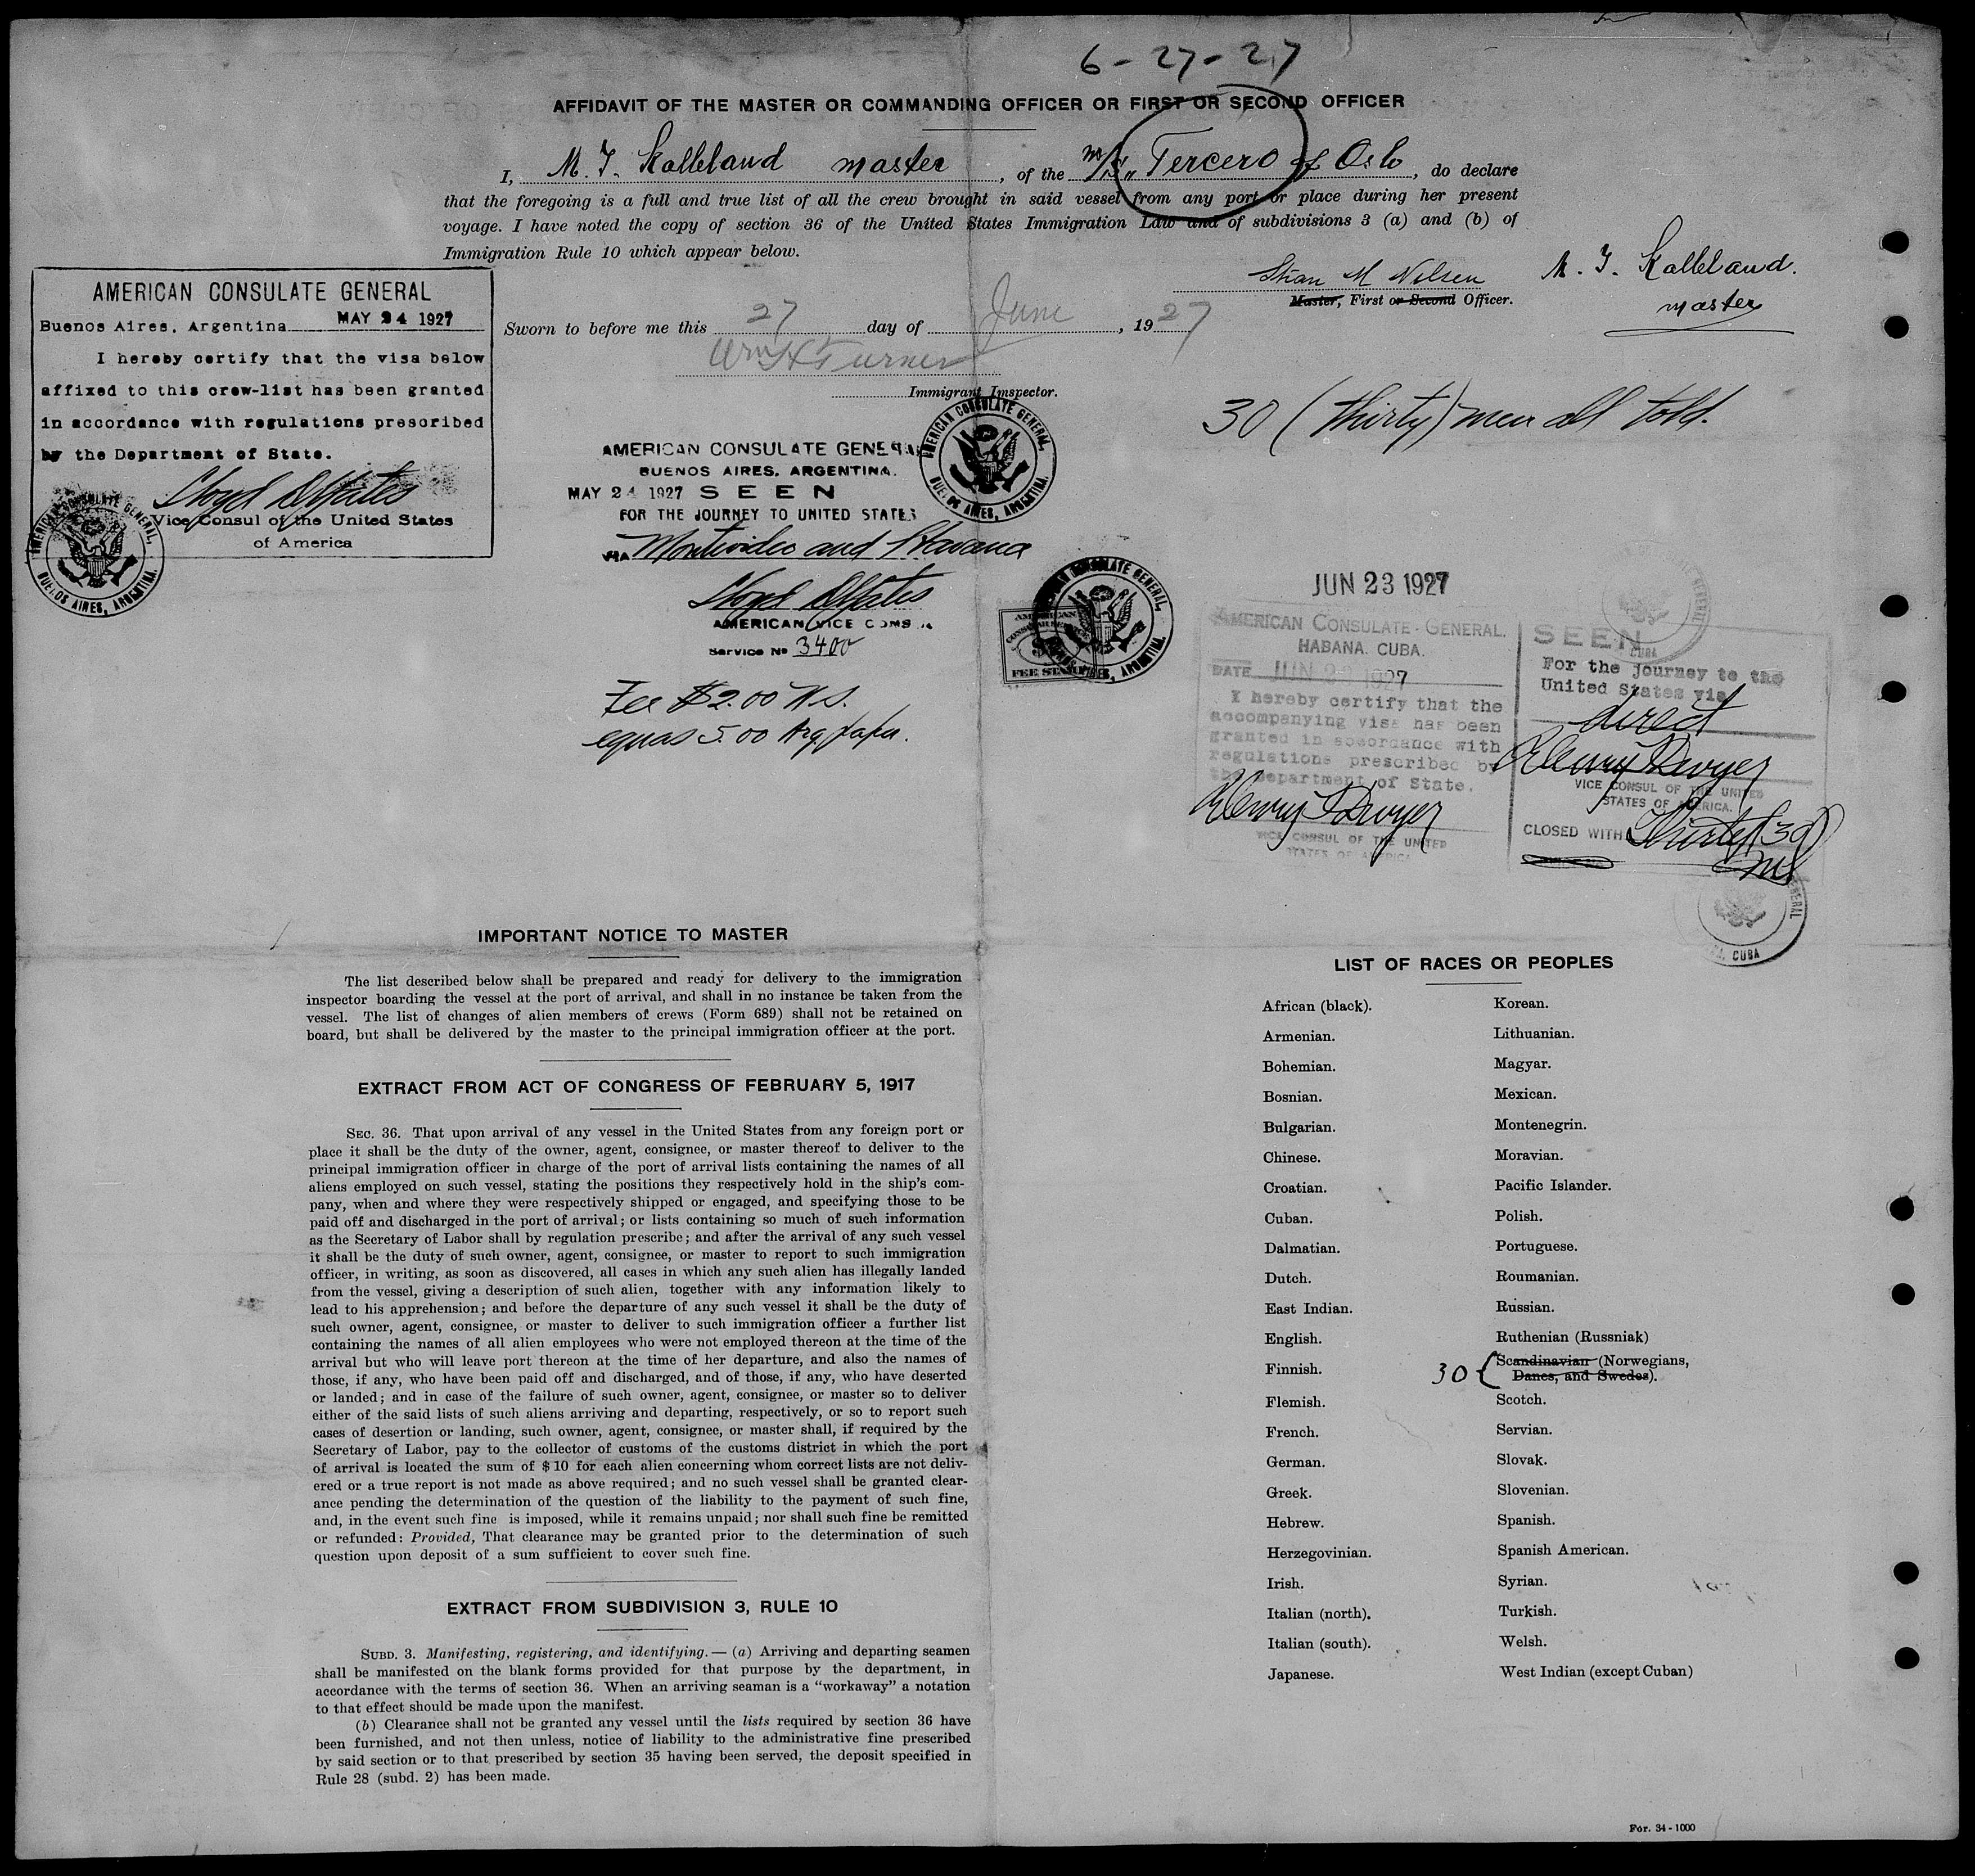 6-27-27
AFFIDAVIT OF THE MASTER OR COMMANDING OFFICER OR FIRST OR SECOND OFFICER
I, M. J. Kalleland master, of the M/S „Tercero of Oslo, do declare
that the foregoing is a full and true list of all the crew brought in said vessel from any port or place during her present
voyage. I have noted the copy of section 36 of the United States Immigration Law and of subdivisions 3 (a) and (b) of
Immigration Rule 10 which appear below.
M. J. Kalleland.
master
Nilsen
Master, First or Second Officer.
Sworn to before me this 27 day of June, 1927
Wm H Turner
Immigrant Inspector.
AMERICAN CONSULATE GENERAL
Buenos Aires, Argentina MAY 24 1927
I hereby certify that the visa below
affixed to this crew-list has been granted
in accordance with regulations prescribed
by the Department of State.
Lloyd D Yates
Vice Consul of the United States
of America
AMERICAN CONSULATE GENERAL, BUENOS AIRES, ARGENTINA.
30 (thirty) men all told.
AMERICAN CONSULATE GENERAL
BUENOS AIRES, ARGENTINA.
MAY 24 1927 SEEN
FOR THE JOURNEY TO UNITED STATES
VIA Montevideo and Havana
Lloyd D Yates
AMERICAN VICE CONSUL
Service No 3400
AMERICAN CONSULATE GENERAL, BUENOS AIRES, ARGENTINA.
Fee $2.00 U.S.
equas 5.00 Arg. paper.
AMERICAN CONSULATE GENERAL, BUENOS AIRES, ARGENTINA.
AMERICAN
FEE STAMP
JUN 23 1927
AMERICAN CONSULATE-GENERAL.
HABANA. CUBA.
DATE JUN 23 1927
I hereby certify that the
accompanying visa has been
granted in accordance with
regulations prescribed by
the Department of State.
Henry T Dwyer
VICE CONSUL OF THE UNITED
STATES OF AMERICA
SEEN
For the journey to the
United States via
direct
Henry T Dwyer
VICE CONSUL OF THE UNITED
STATES OF AMERICA.
CLOSED WITH Thirty (30)
CUBA
IMPORTANT NOTICE TO MASTER
The list described below shall be prepared and ready for delivery to the immigration
inspector boarding the vessel at the port of arrival, and shall in no instance be taken from the
vessel. The list of changes of alien members of crews (Form 689) shall not be retained on
board, but shall be delivered by the master to the principal immigration officer at the port.
EXTRACT FROM ACT OF CONGRESS OF FEBRUARY 5, 1917
SEC. 36. That upon arrival of any vessel in the United States from any foreign port or
place it shall be the duty of the owner, agent, consignee, or master thereof to deliver to the
principal immigration officer in charge of the port of arrival lists containing the names of all
aliens employed on such vessel, stating the positions they respectively hold in the ship's com-
pany, when and where they were respectively shipped or engaged, and specifying those to be
paid off and discharged in the port of arrival; or lists containing so much of such information
as the Secretary of Labor shall by regulation prescribe; and after the arrival of any such vessel
it shall be the duty of such owner, agent, consignee, or master to report to such immigration
officer, in writing, as soon as discovered, all cases in which any such alien has illegally landed
from the vessel, giving a description of such alien, together with any information likely to
lead to his apprehension; and before the departure of any such vessel it shall be the duty of
such owner, agent, consignee, or master to deliver to such immigration officer a further list
containing the names of all alien employees who were not employed thereon at the time of the
arrival but who will leave port thereon at the time of her departure, and also the names of
those, if any, who have been paid off and discharged, and of those, if any, who have deserted
or landed; and in case of the failure of such owner, agent, consignee, or master so to deliver
either of the said lists of such aliens arriving and departing, respectively, or so to report such
cases of desertion or landing, such owner, agent, consignee, or master shall, if required by the
Secretary of Labor, pay to the collector of customs of the customs district in which the port
of arrival is located the sum of $10 for each alien concerning whom correct lists are not deliv-
ered or a true report is not made as above required; and no such vessel shall be granted clear-
ance pending the determination of the question of the liability to the payment of such fine,
and, in the event such fine is imposed, while it remains unpaid; nor shall such fine be remitted
or refunded: Provided, That clearance may be granted prior to the determination of such
question upon deposit of a sum sufficient to cover such fine.
EXTRACT FROM SUBDIVISION 3, RULE 10
SUBD. 3. Manifesting, registering, and identifying.—(a) Arriving and departing seamen
shall be manifested on the blank forms provided for that purpose by the department, in
accordance with the terms of section 36. When an arriving seaman is a "workaway" a notation
to that effect should be made upon the manifest.
(b) Clearance shall not be granted any vessel until the lists required by section 36 have
been furnished, and not then unless, notice of liability to the administrative fine prescribed
by said section or to that prescribed by section 35 having been served, the deposit specified in
Rule 28 (subd. 2) has been made.
LIST OF RACES OR PEOPLES
African (black).
Armenian.
Bohemian.
Bosnian.
Bulgarian.
Chinese.
Croatian.
Cuban.
Dalmatian.
Dutch.
East Indian.
English.
Finnish.
Flemish.
French.
German.
Greek.
Hebrew.
Herzegovinian.
Irish.
Italian (north).
Italian (south).
Japanese.
Korean.
Lithuanian.
Magyar.
Mexican.
Montenegrin.
Moravian.
Pacific Islander.
Polish.
Portuguese.
Roumanian.
Russian.
Ruthenian (Russniak)
30 { Scandinavian (Norwegians,
Danes, and Swedes).
Scotch.
Servian.
Slovak.
Slovenian.
Spanish.
Spanish American.
Syrian.
Turkish.
Welsh.
West Indian (except Cuban)
For. 34-1000